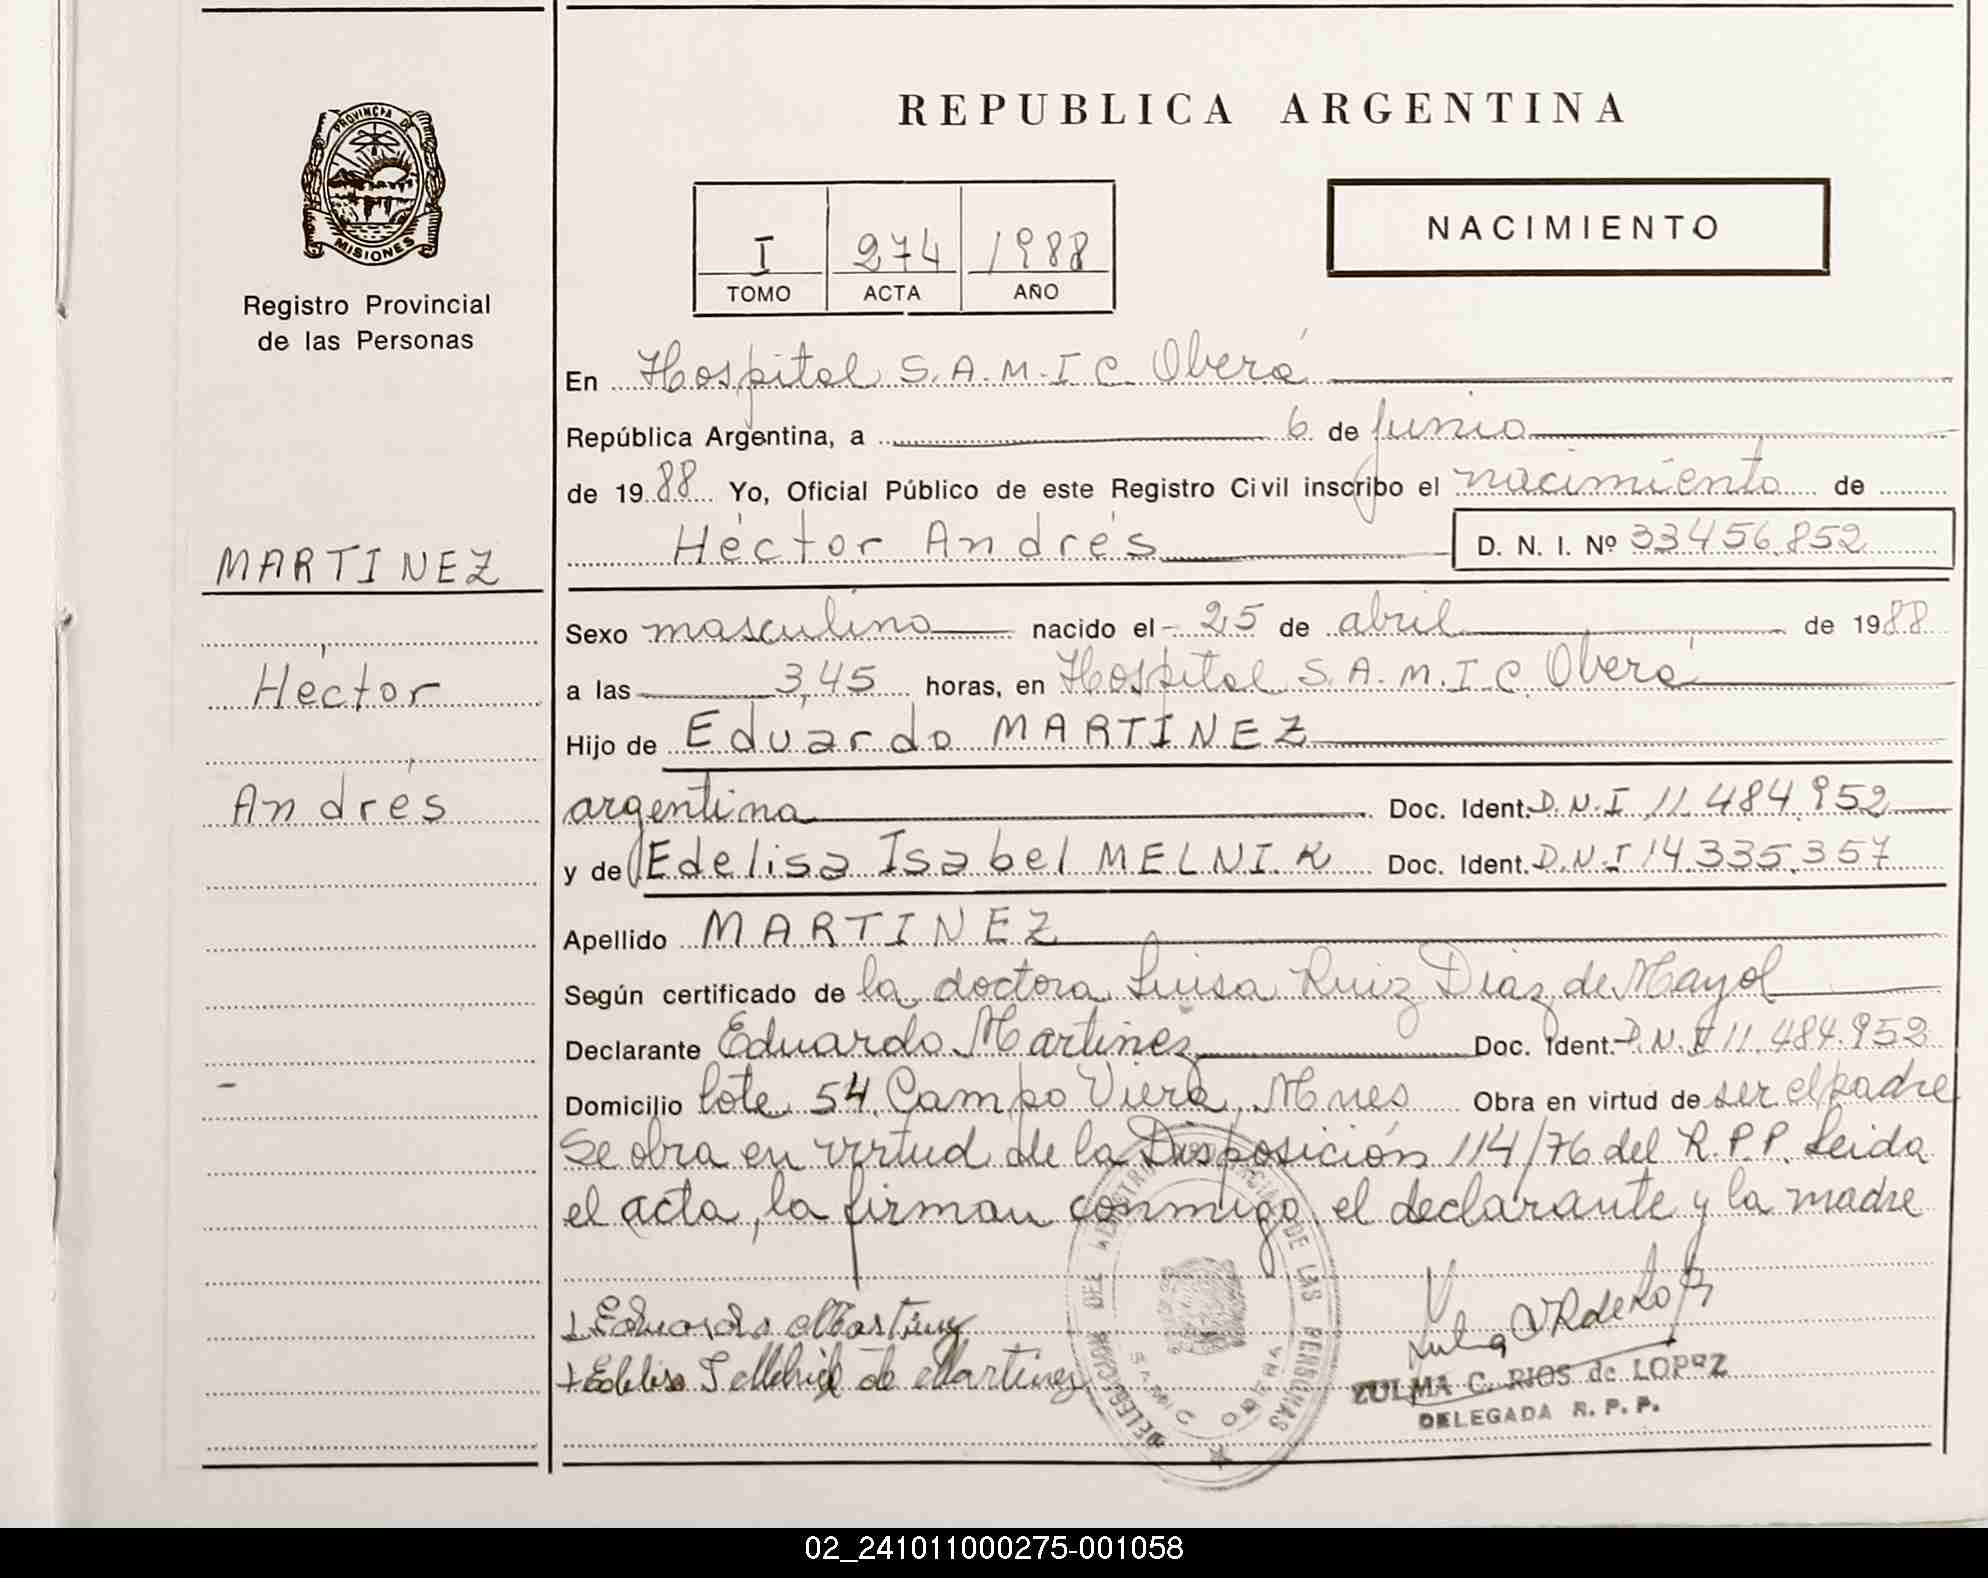 REPUBLICA ARGENTINA
PROVINCIA DE
MISIONES
Registro Provincial
de las Personas
I 274 1988
TOMO ACTA AÑO
NACIMIENTO
En Hospital S.A.M.I.C. Oberá
República Argentina, a 6 de junio
de 1988 Yo, Oficial Público de este Registro Civil inscribo el nacimiento de
Héctor Andrés D. N. I. Nº 33.456.852
MARTINEZ
Héctor
Andrés
Sexo masculino nacido el 25 de abril de 1988
a las 3,45 horas, en Hospital S.A.M.I.C. Oberá
Hijo de Eduardo MARTINEZ
argentina Doc. Ident. D.N.I 11.484.952
y de Edelisa Isabel MELNIK Doc. Ident. D.N.I 14.335.357
Apellido MARTINEZ
Según certificado de la doctora Luisa Ruiz Diaz de Mayol
Declarante Eduardo Martinez Doc. Ident. D.N.I 11.484.952
Domicilio lote 54 Campo Viera, Mnes Obra en virtud de ser el padre
Se obra en virtud de la Disposición 114/76 del R.P.P. Leida
el acta, la firman conmigo, el declarante y la madre
Eduardo Martinez
de Martinez
DE LAS PERSONAS
SAMIC OBERA
ZULMA C. RIOS de LOPEZ
DELEGADA R. P. P.
02_241011000275-001058